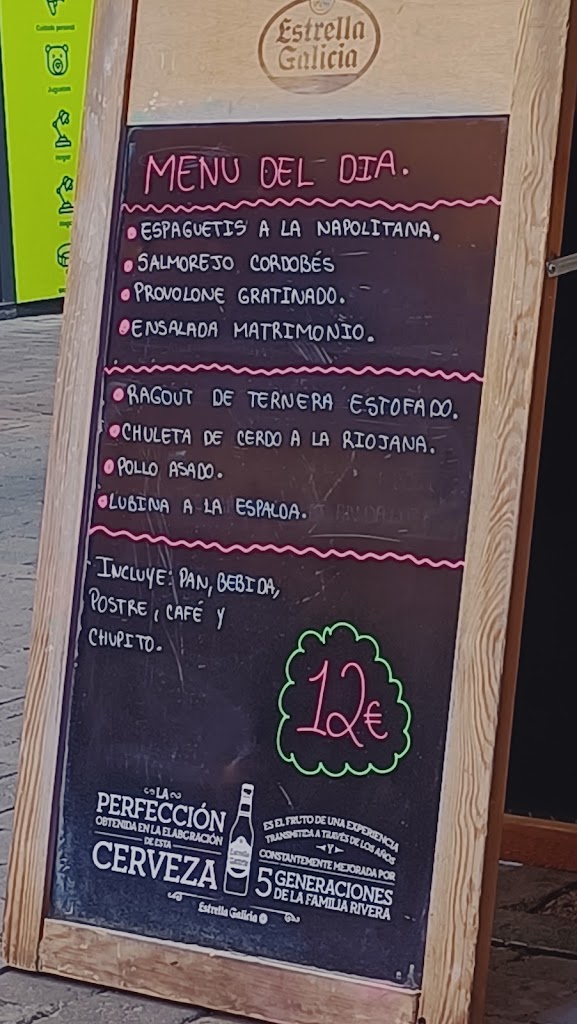 Cuidado personal
Juguetes
Hogar
Estrella
Galicia
MENU DEL DIA.
ESPAGUETIS A LA NAPOLITANA.
SALMOREJO CORDOBÉS
PROVOLONE GRATINADO.
ENSALADA MATRIMONIO.
RAGOUT DE TERNERA ESTOFADO.
CHULETA DE CERDO A LA RIOJANA.
POLLO ASADO.
LUBINA A LA ESPALDA.
INCLUYE: PAN, BEBIDA,
POSTRE, CAFÉ Y
CHUPITO.
12€
LA
PERFECCIÓN
OBTENIDA EN LA ELABORACIÓN
DE ESTA
CERVEZA
Estrella
Galicia
ES EL FRUTO DE UNA EXPERIENCIA
TRANSMITIDA A TRAVÉS DE LOS AÑOS
Y
CONSTANTEMENTE MEJORADA POR
5 GENERACIONES
DE LA FAMILIA RIVERA
Estrella Galicia